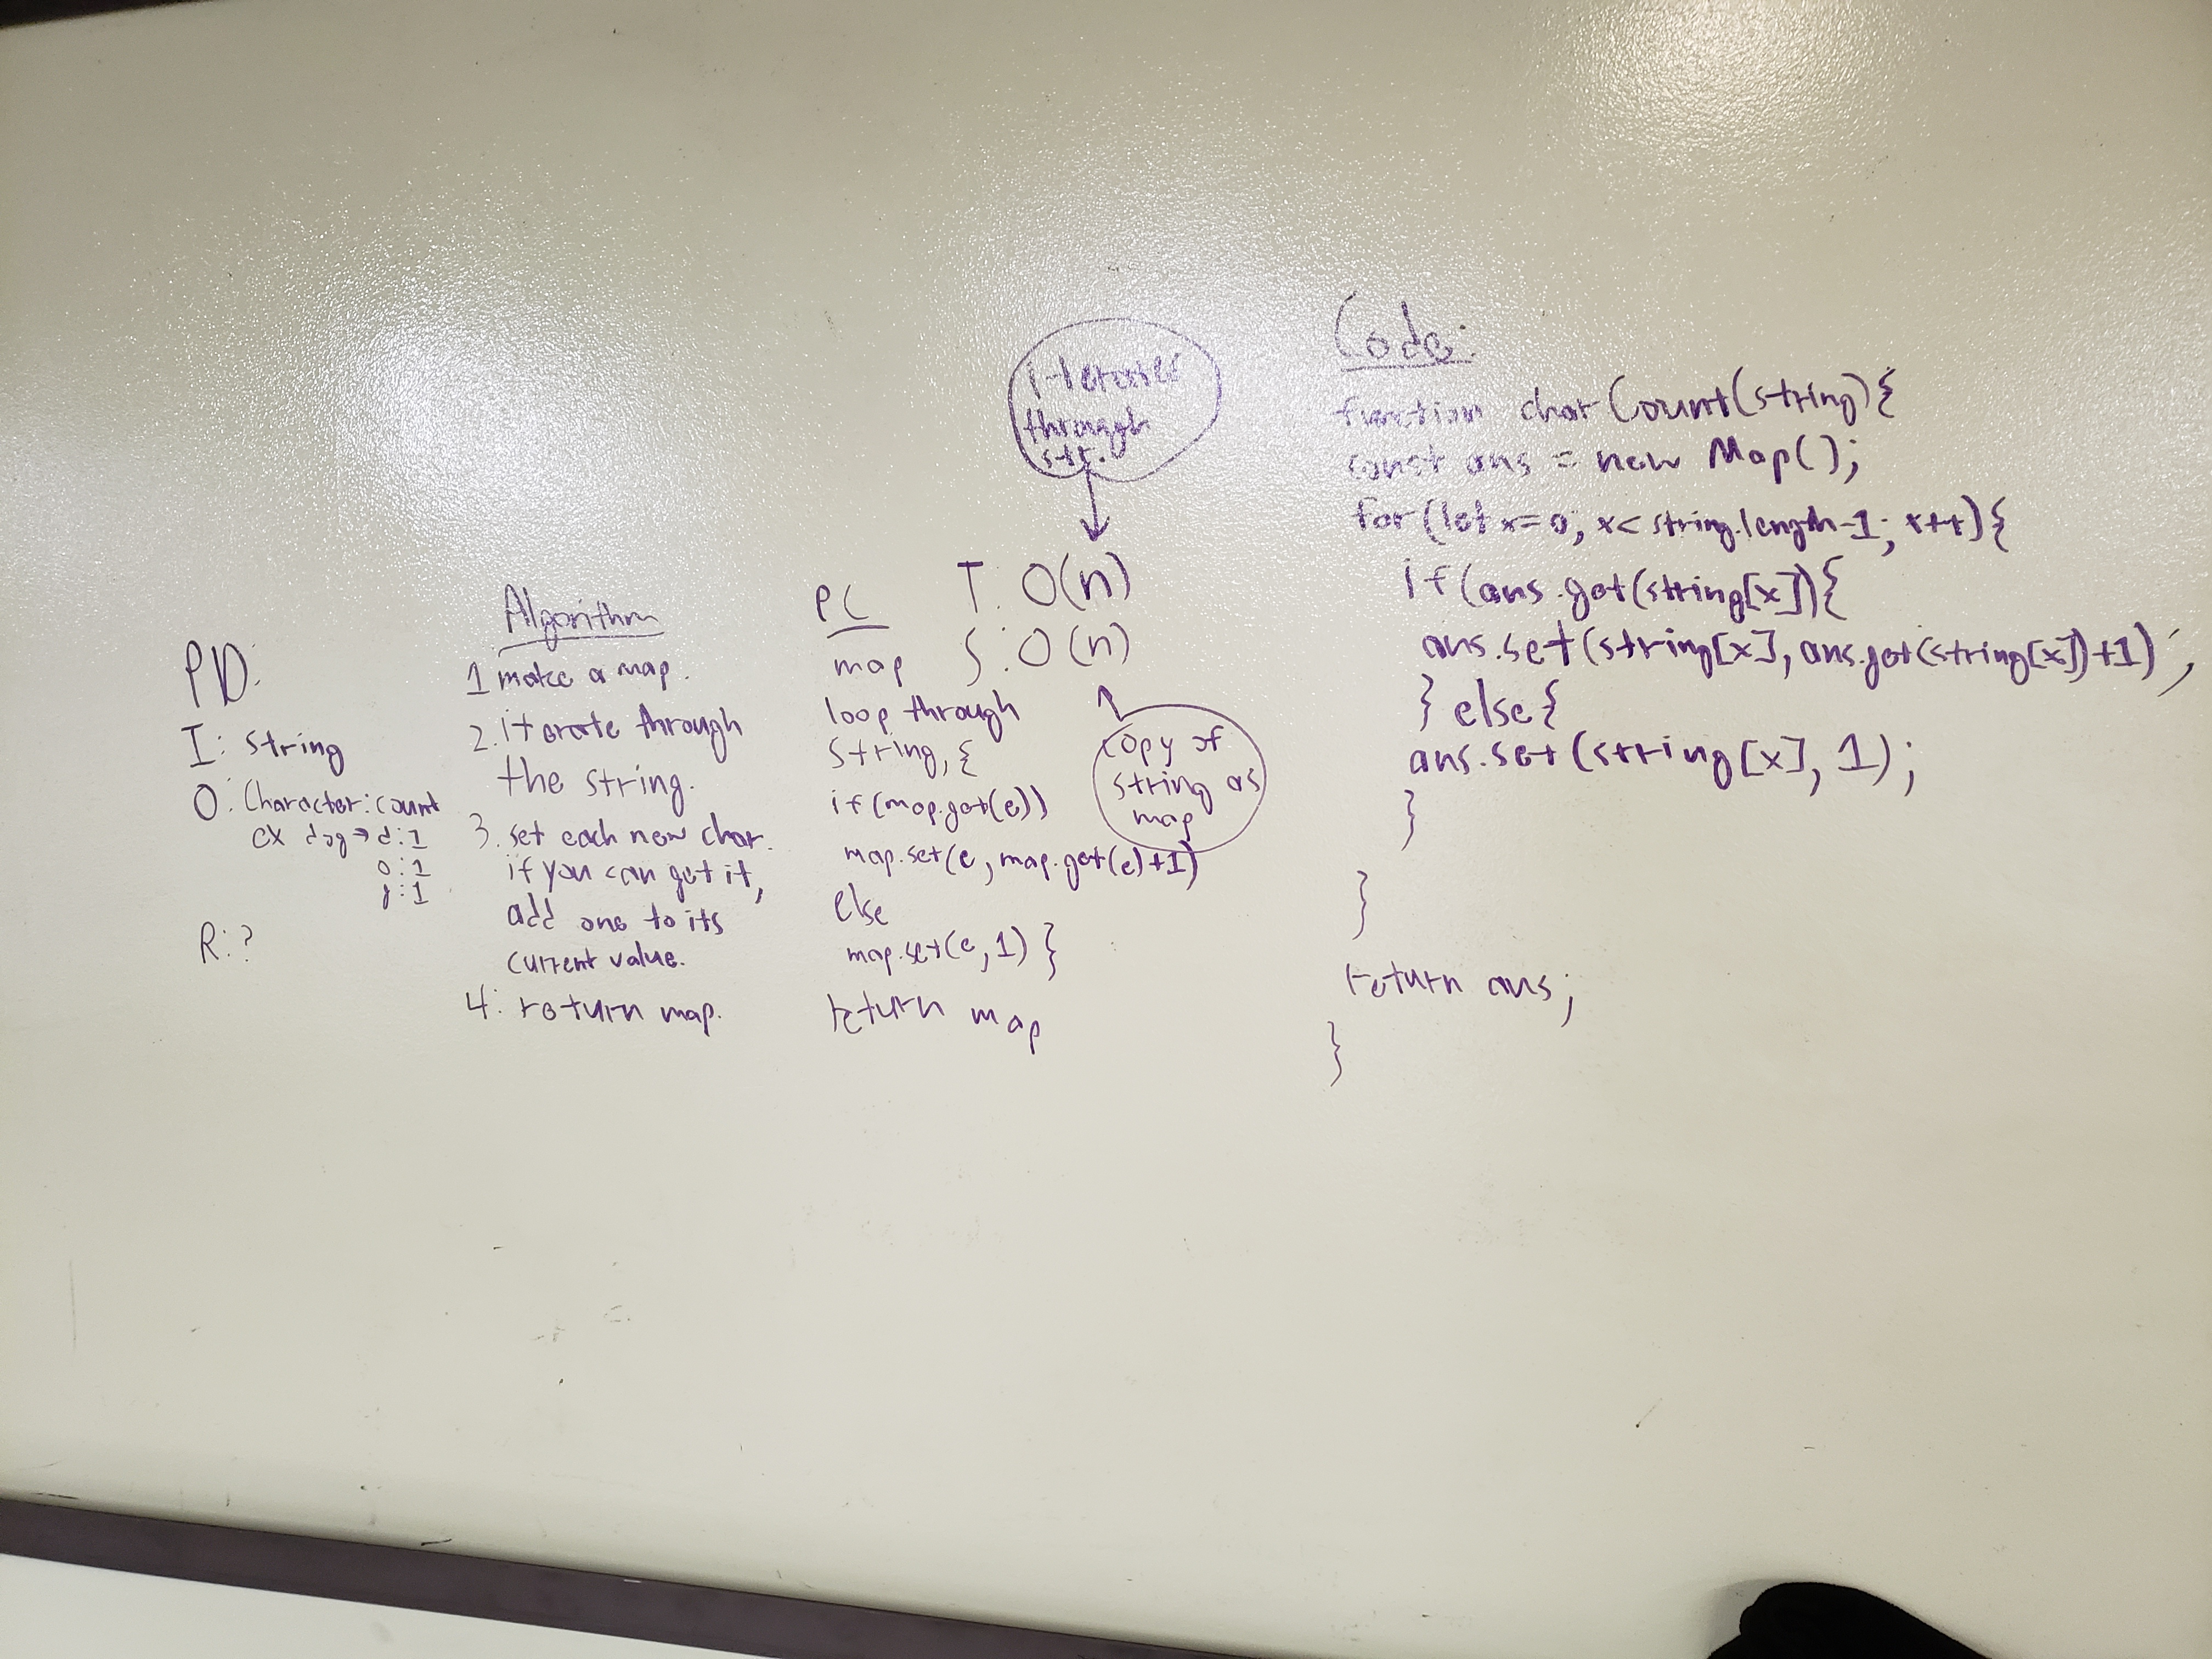 PD:
I: string
O: Character: count
ex dog → d:1
o:1
g:1
R:?
Algorithm
1 make a map.
2. iterate through
the string.
3. set each new char.
if you can get it,
add one to its
current value.
4: return map.
PC
map
loop through
string, {
if(map.get(e))
map.set(e, map.get(e)+1)
else
map.set(e,1) }
return map
iterates
through
str.
T: O(n)
S: O(n)
copy of
string as
map
Code:
function charCount(string){
const ans = new Map();
for(let x=0; x< string.length-1; x++){
if(ans.get(string[x]){
ans.set(string[x], ans.get(string[x])+1);
} else{
ans.set(string[x], 1);
}
}
return ans;
}